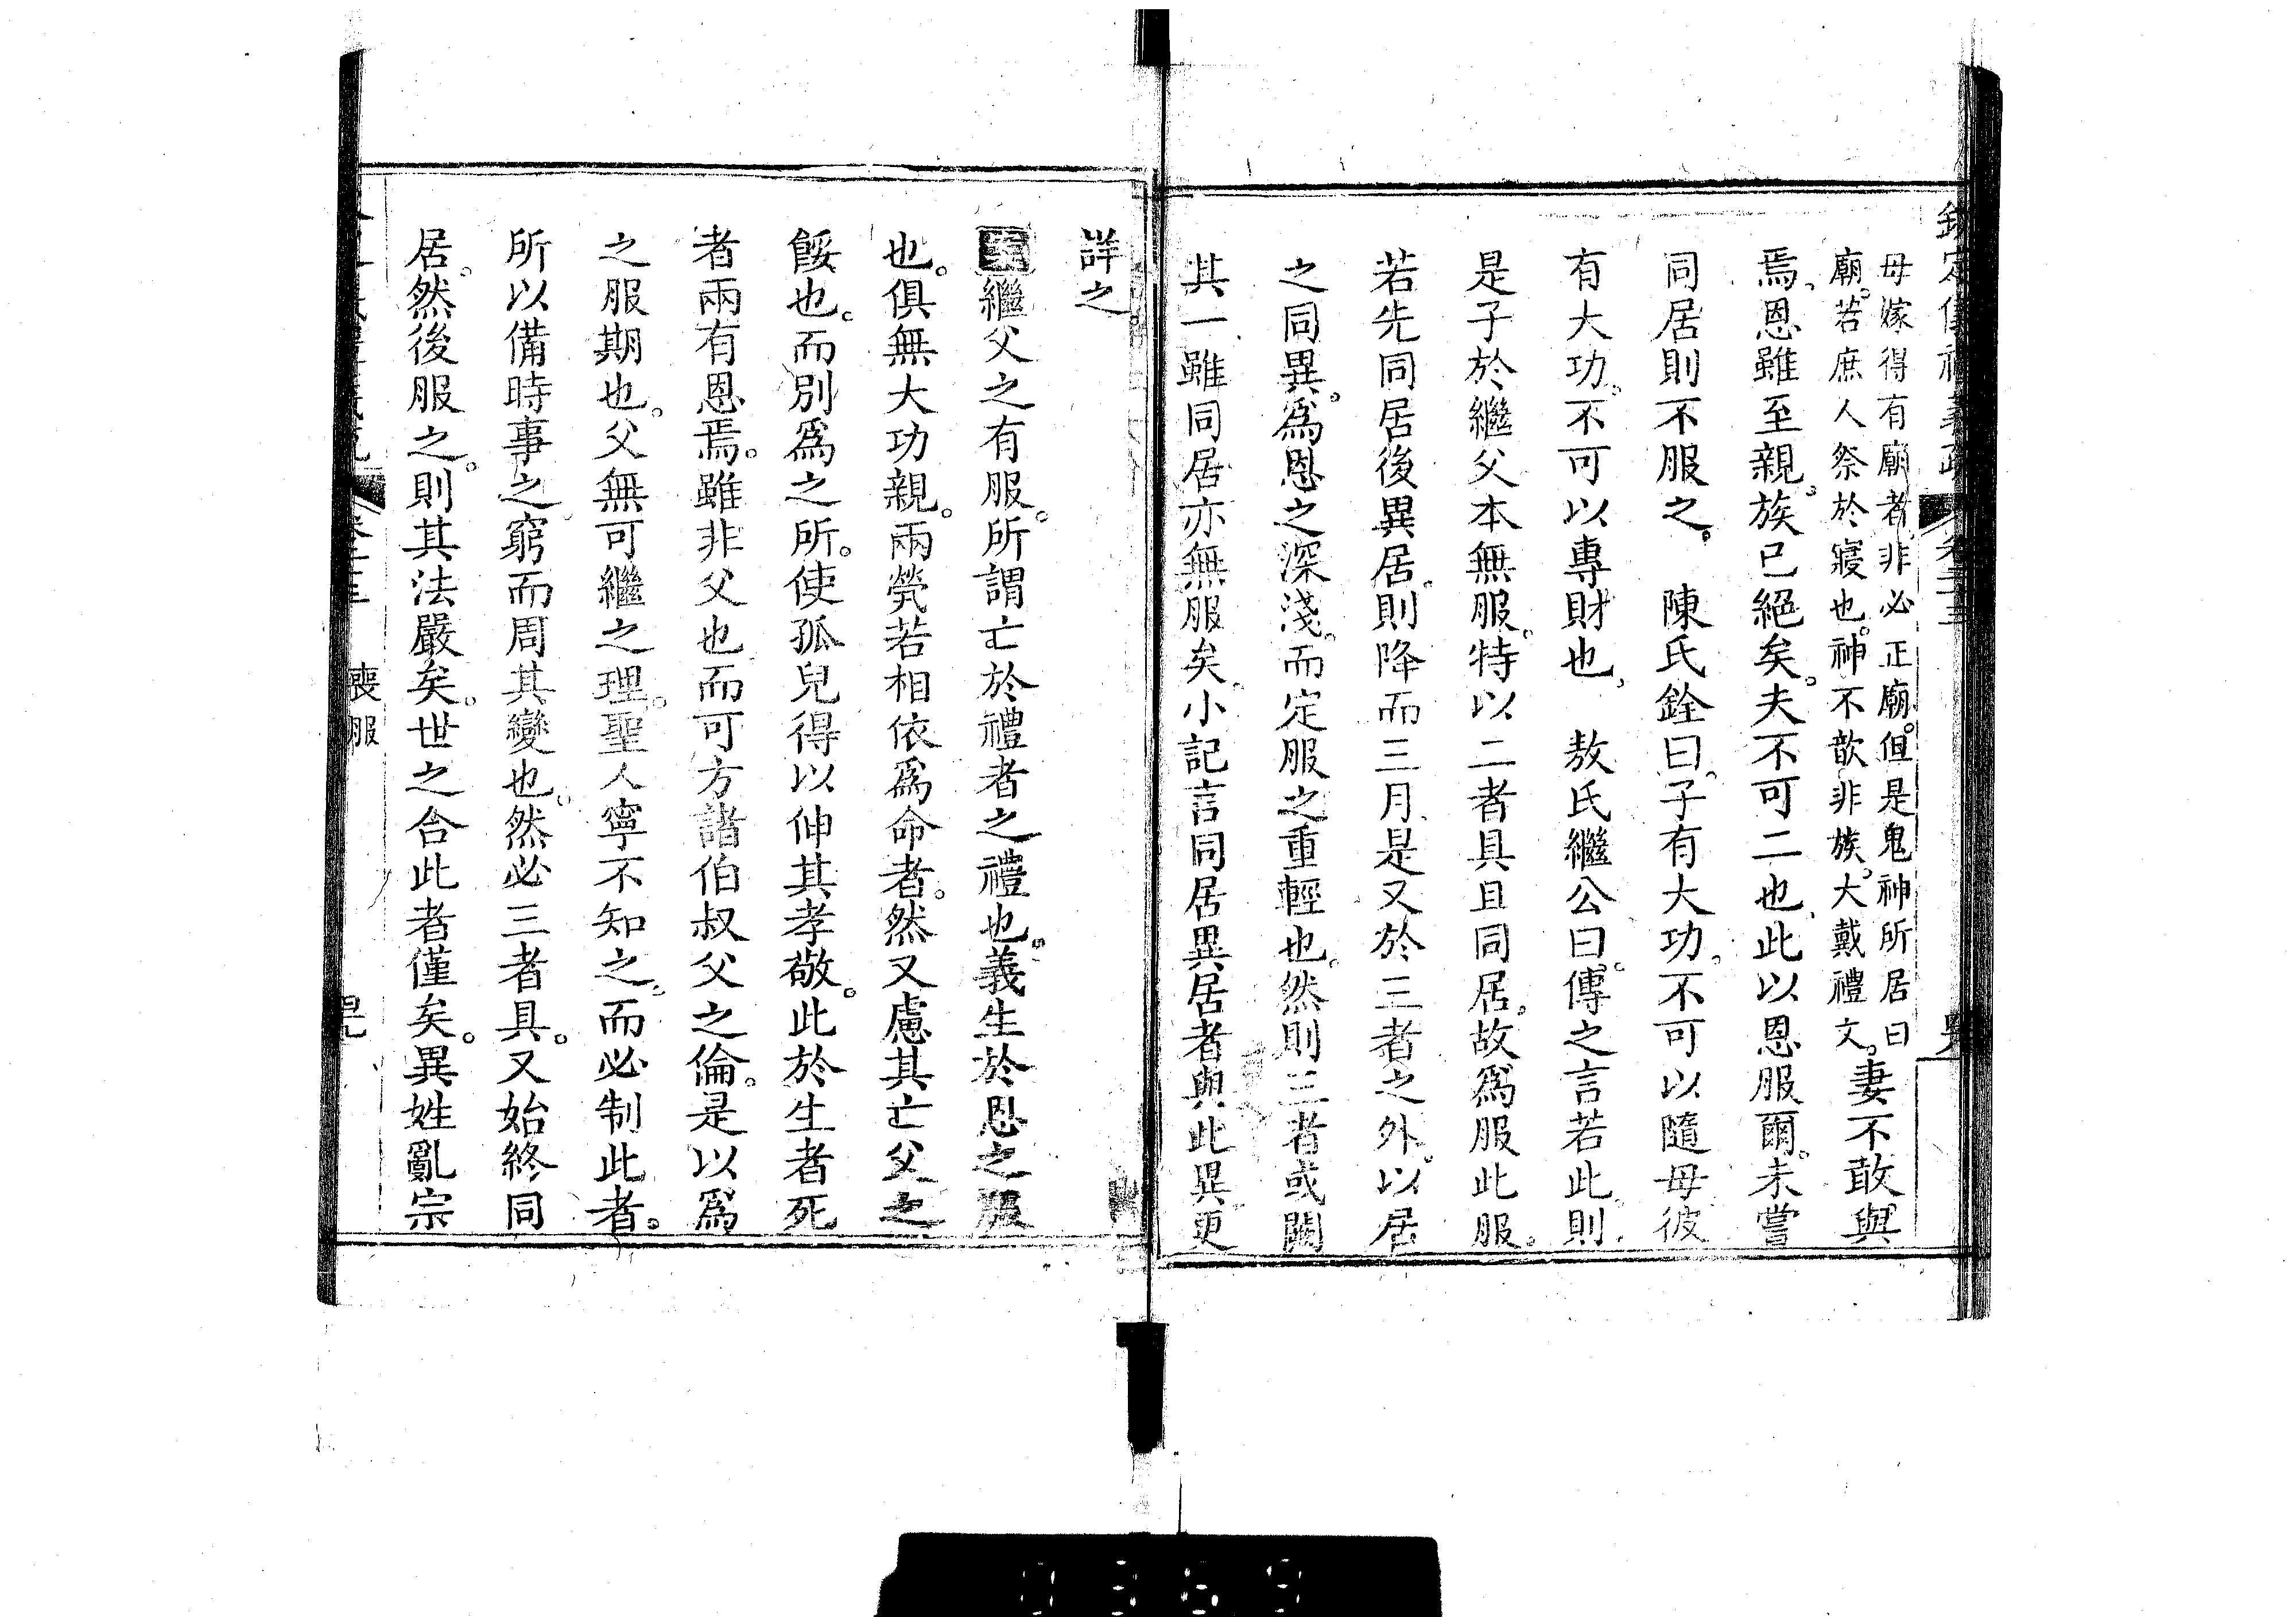 欽定儀禮義疏 卷二十三
母嫁得有廟者非必正廟。但是鬼神所居曰
廟。若庶人祭於寢也。神不歆非族。大戴禮文。妻不敢與
焉。恩雖至親。族已絕矣。夫不可二也。此以恩服爾。未嘗
同居則不服之。 陳氏銓曰。子有大功。不可以隨母彼
有大功。不可以專財也。 敖氏繼公曰。傳之言若此。則
是子於繼父本無服。特以二者具且同居。故爲服此服。
若先同居後異居。則降而三月是又於三者之外。以居
之同異。爲恩之深淺。而定服之重輕也。然則三者或闕
其一雖同居亦無服矣。小記言同居異居者與此異更
詳之。
繼父之有服。所謂亡於禮者之禮也。義生於恩之服
也。俱無大功親。兩煢若相依爲命者。然又慮其亡父之
餒也。而別爲之所。使孤兒得以伸其孝敬。此於生者死
者兩有恩焉。雖非父也而可方諸伯叔父之倫。是以爲
之服期也。父無可繼之理。聖人寧不知之。而必制此者。
所以備時事之窮而周其變也。然必三者具。又始終同
居。然後服之。則其法嚴矣。世之合此者僅矣。異姓亂宗
喪服
0369